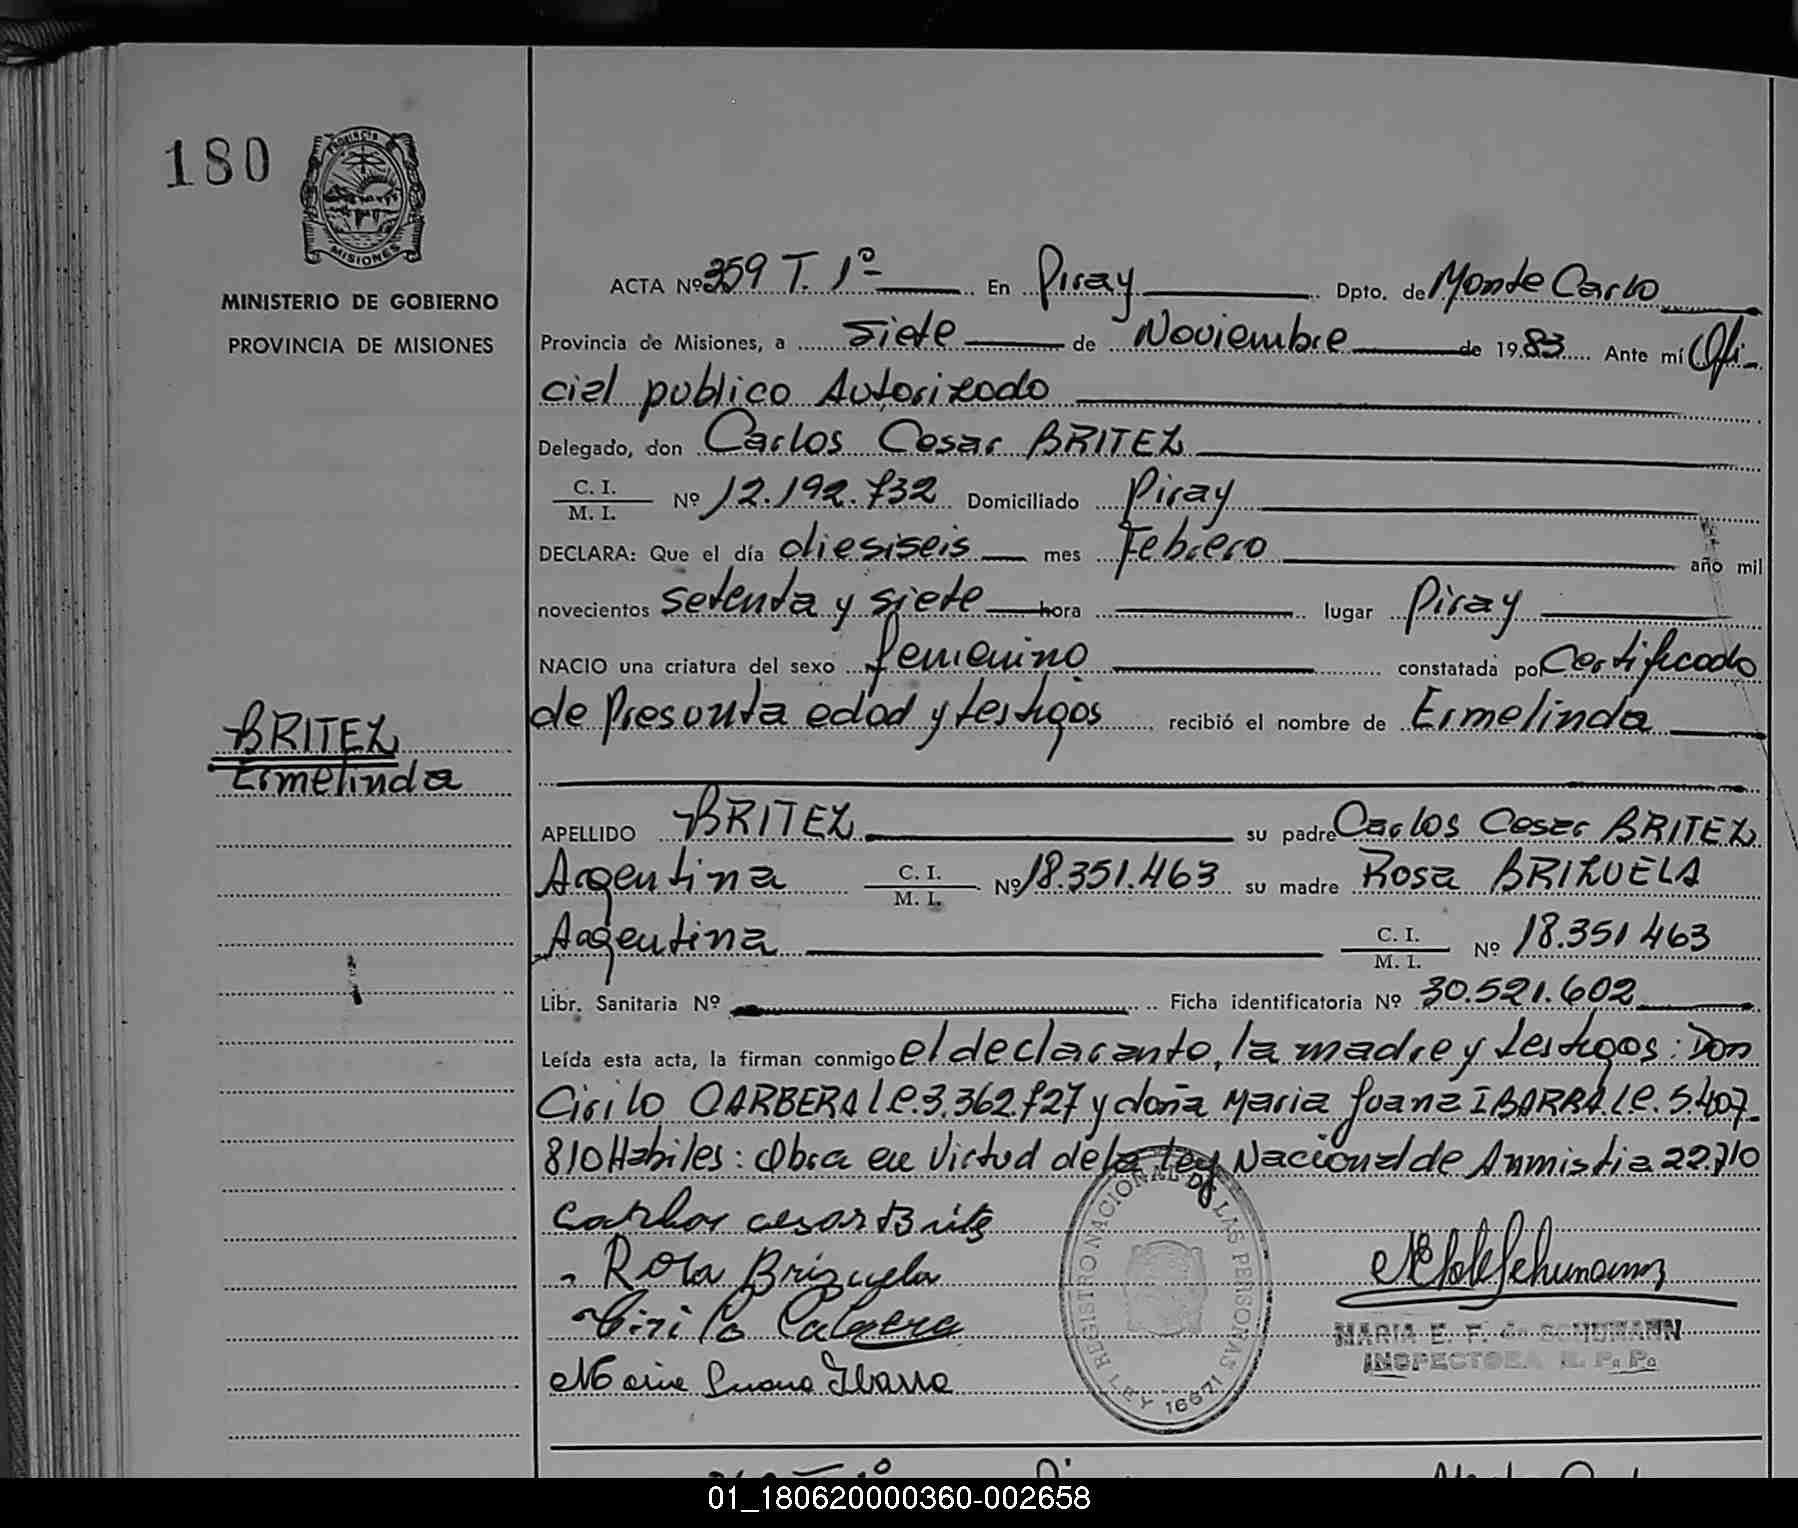 180
PROVINCIA
MISIONES
MINISTERIO DE GOBIERNO
PROVINCIA DE MISIONES
BRITEZ
Ermelinda
ACTA Nº 359 T. 1º En Piray Dpto. de Monte Carlo
Provincia de Misiones, a siete de Noviembre de 1983 Ante mí Ofi-
cial publico Autorizado
Delegado, don Carlos Cesar BRITEZ
C. I.
M. I. Nº 12.192.732 Domiciliado Piray
DECLARA: Que el día diesiseis mes Febrero año mil
novecientos setenta y siete hora lugar Piray
NACIO una criatura del sexo femenino constatada por Certificado
de Presunta edad y testigos recibió el nombre de Ermelinda
APELLIDO BRITEZ su padre Carlos Cesar BRITEZ
Argentina C. I.
M. I. Nº 18.351.463 su madre Rosa BRIZUELA
Argentina C. I.
M. I. Nº 18.351 463
Libr. Sanitaria Nº Ficha identificatoria Nº 30.521.602
Leída esta acta, la firman conmigo el declarante, la madre y testigos: Don
Cirilo CARBERA l.e. 3.362.727 y doña Maria Juana IBARRA l.c. 5.407.
810 Habiles: Obra en Virtud de la Ley Nacional de Anmistia 22.710
Carlos cesar Britez
Rosa Brizuela
Cirilo Cabrera
Maria Juana Ibarra
REGISTRO NACIONAL DE LAS PERSONAS
LEY 16671
MARIA E. F. de SCHUMANN
INSPECTORA R. P. P.
01_180620000360-002658